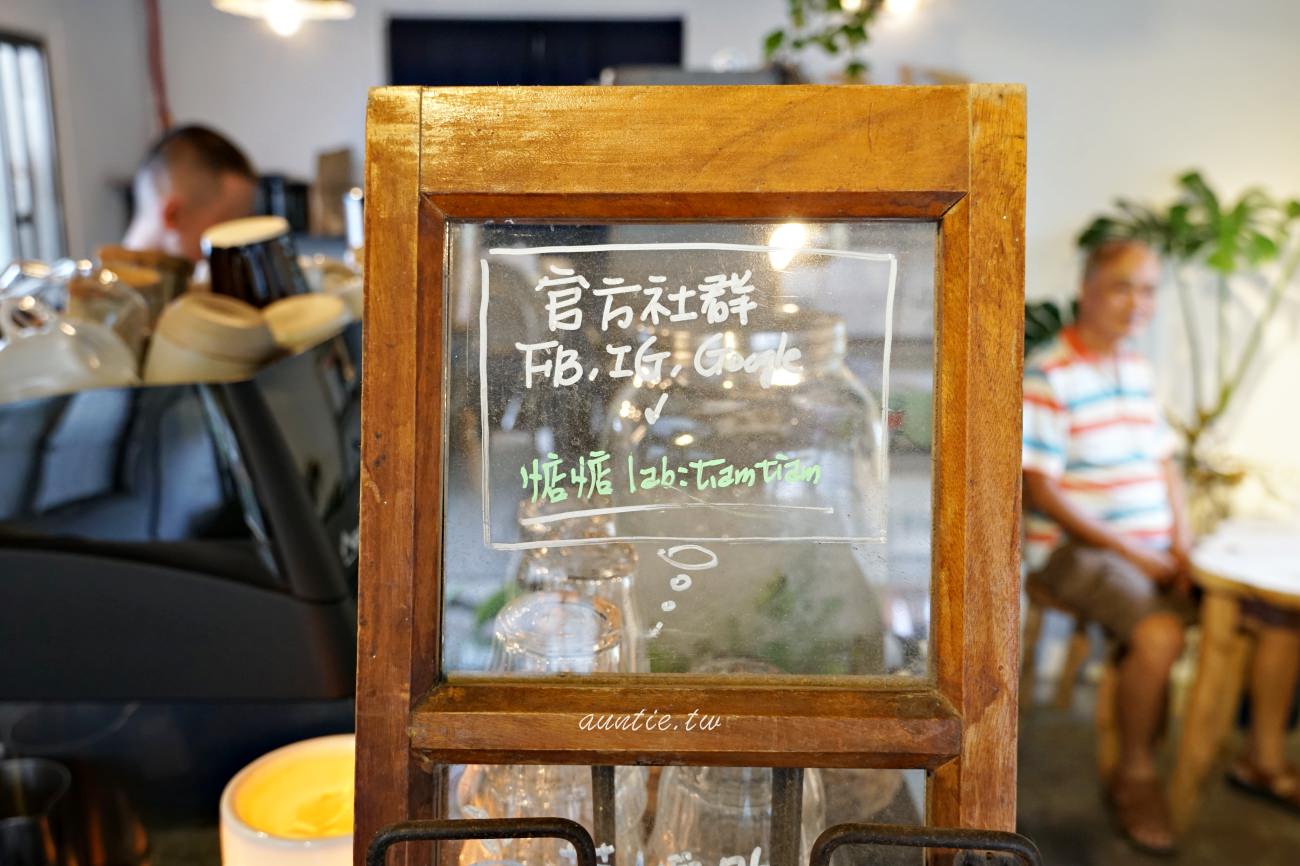 官方社群
FB, IG, Google
惦惦 lab:tiamtiam
auntie.tw